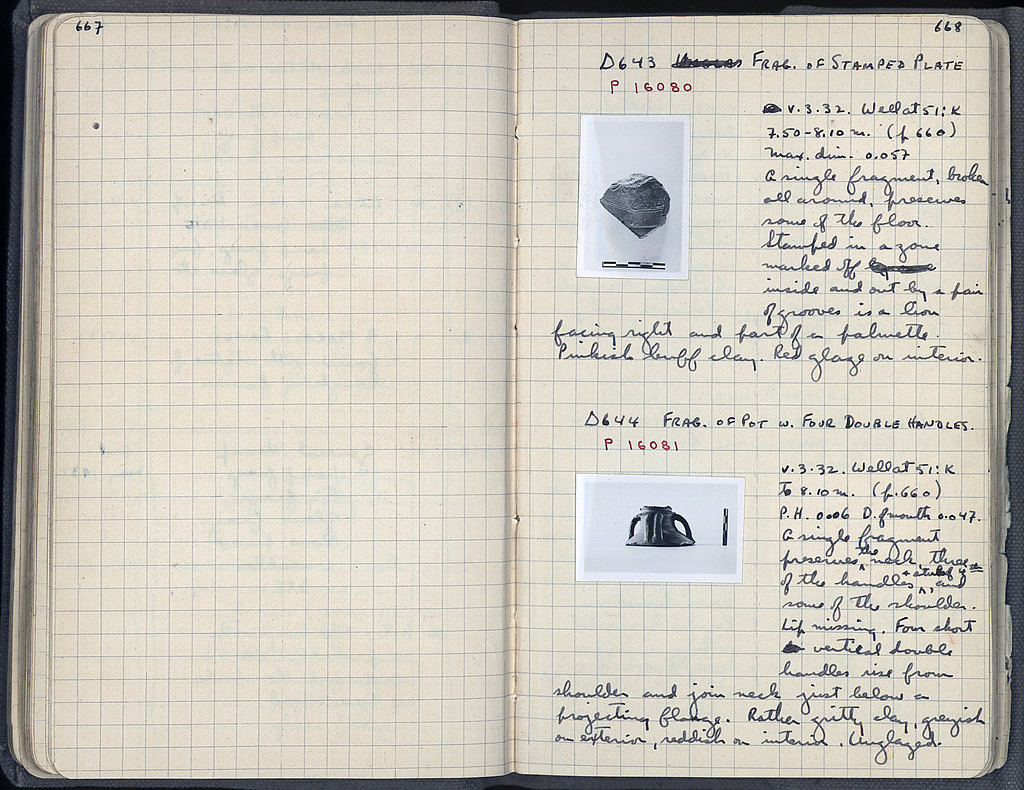 667
668
D643 FRAG. OF STAMPED PLATE
P 16080
v.3.32. Well at 51:K
7.50-8.10 m. (p. 660)
Max. dim. 0.057
A single fragment, broken
all around, preserves
some of the floor.
Stamped in a zone
marked off
inside and out by a pair
of grooves is a lion
facing right and part of a palmette.
Pinkish buff clay. Red glaze on interior.
D644 FRAG. OF POT W. FOUR DOUBLE HANDLES.
P 16081
v.3.32. Well at 51:K
To 8.10 m. (p. 660)
P.H. 0.06 D. of mouth 0.047.
A single fragment
preserves the neck, three
of the handles + stub of 4, and
some of the shoulder.
Lip missing. Four short
vertical double
handles rise from
shoulder and join neck just below a
projecting flange. Rather gritty clay, greyish
on exterior, reddish on interior. Unglazed.